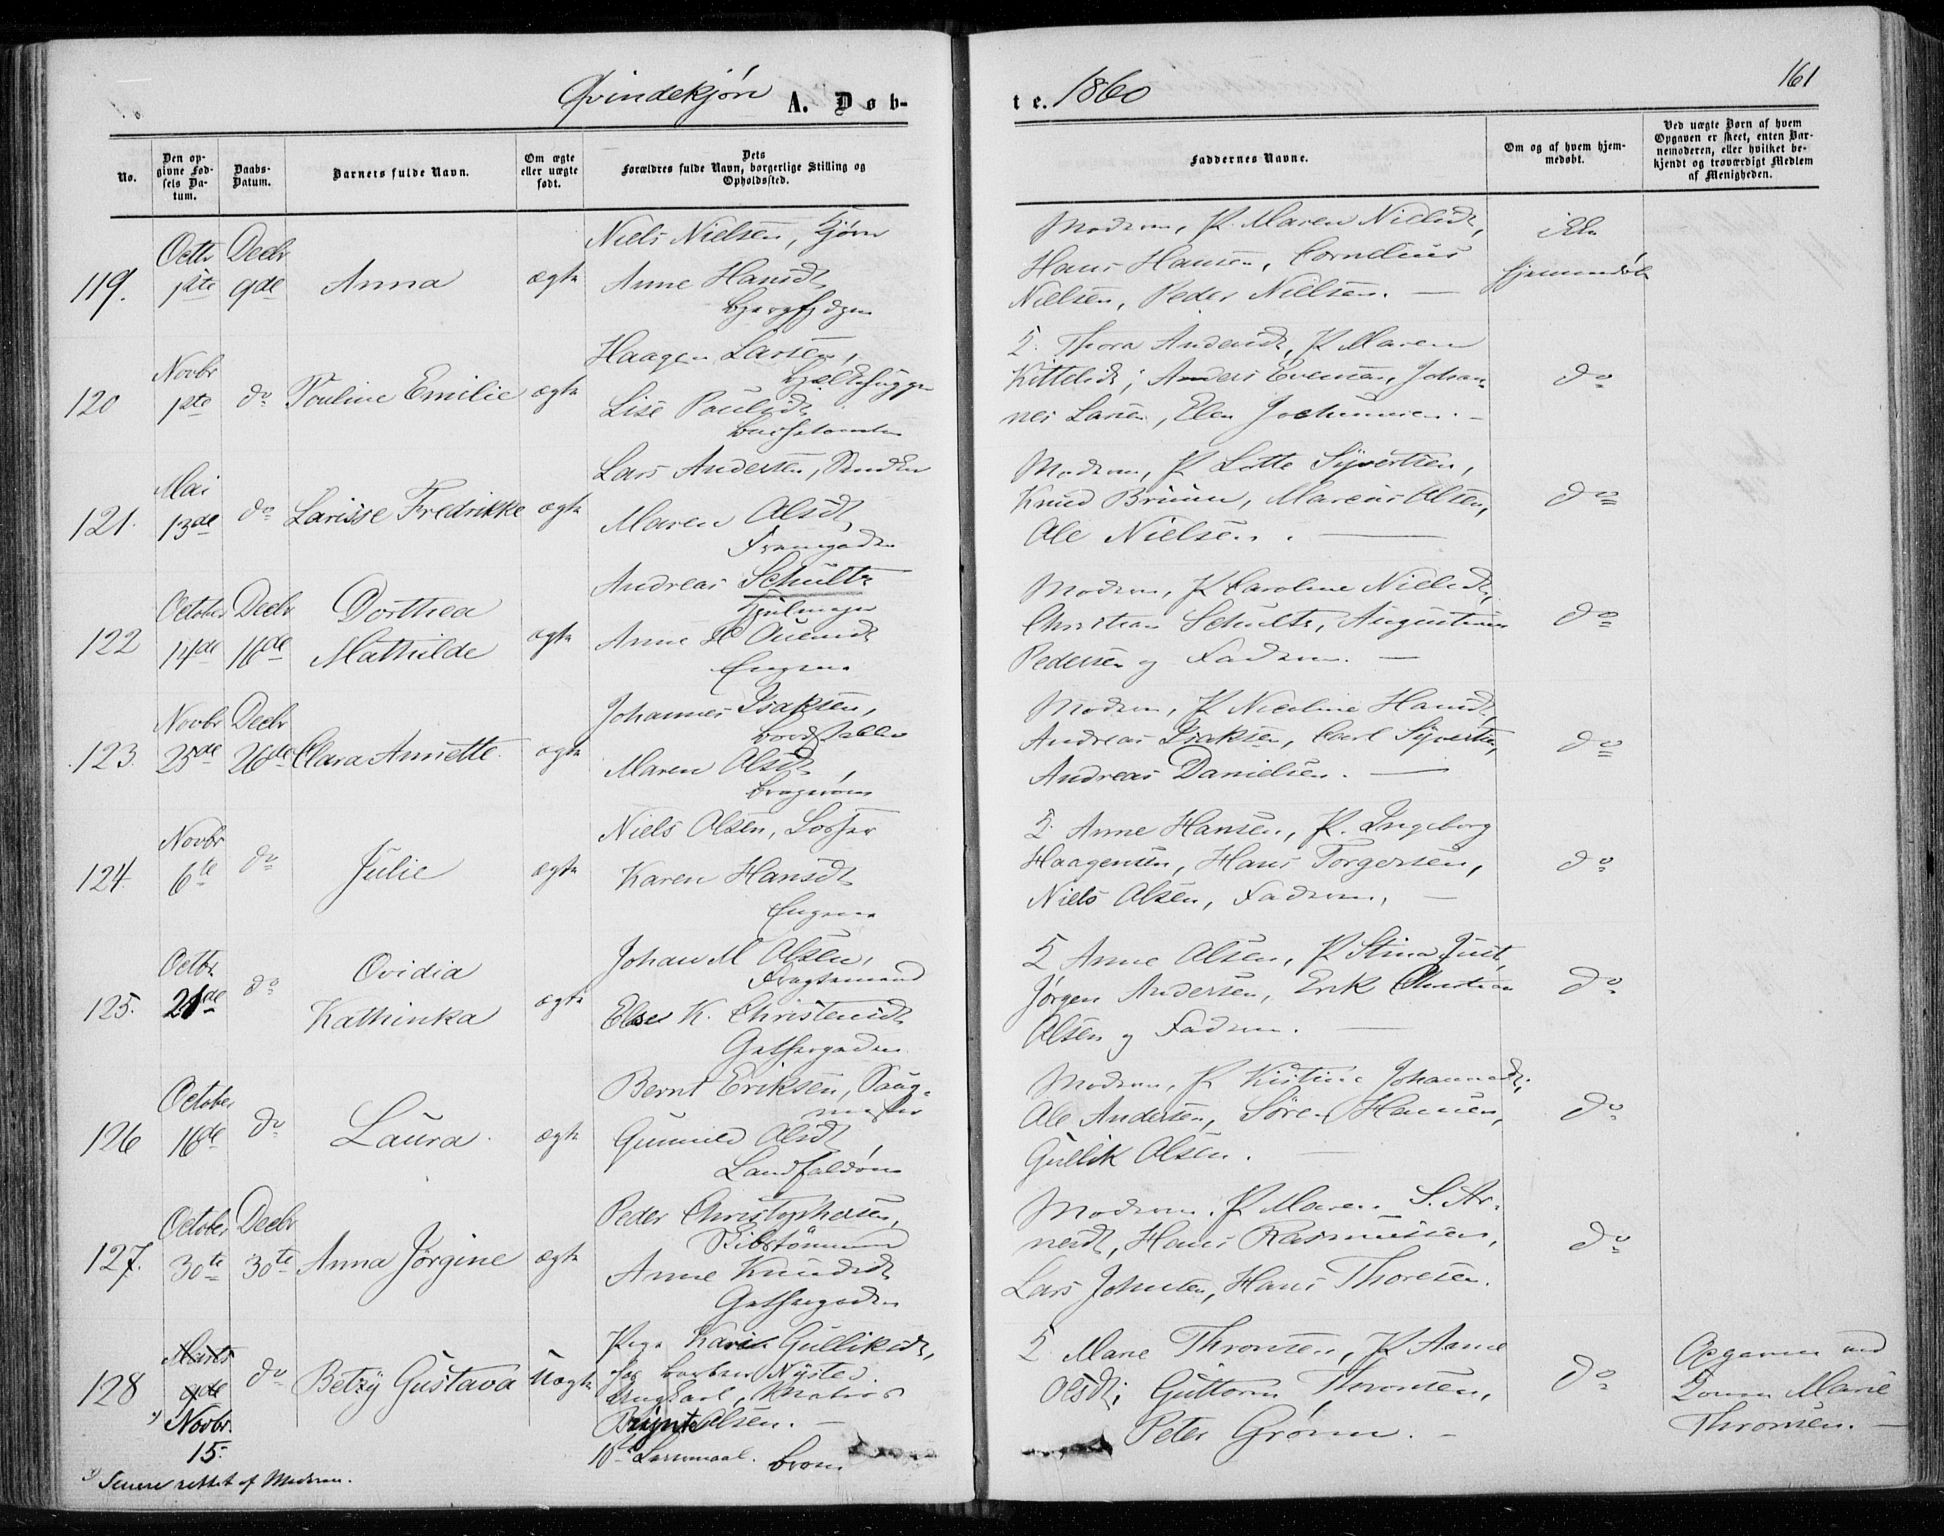 Qvindekjøn A. Døb-
te. 1860
161
No.
Den op-
givne Fød-
sels Da-
tum.
Daabs-
Datum.
Barnets fulde Navn.
Om ægte
eller uægte
født.
Dets
Forældres fulde Navn, borgerlige Stilling og
Opholdssted.
Faddernes Navne.
Om og af hvem hjem-
medøbt.
Ved uægte Børn af hvem
Opgaven er skeet, enten Bar-
nemoderen, eller hvilket be-
kjendt og troværdigt Medlem
af Menigheden.
119.
Octbr
1ste
Decbr
9de
Anna
ægte
Niels Nielsen,
Anne Hansdt
Modren, P. Maren Nielsdt,
Hans Hansen, Cornelius
Nielsen, Peder Nielsen. —
ikke
hjemmedøbt
120
Novbr
1ste
do
Pouline Emilie
ægte
Haagen Larsen,
Lise Paulsdt
2. Thora Andersdt, P. Maren
Kittelsdt; Anders Evensen, Johan-
nes Larsen, Elen Jochumsen. —
do
121.
Mai
13de
do
Larisse Fredrikke
ægte
Lars Andersen, Snedker
Maren Olsdt,
Modren, P. Lotte Syvertsen,
Knud Bruun, Marcus Olsen,
Ole Nielsen. —
do
122
October
14de
Decbr
16de
Dorthea
Mathilde
ægte
Andreas Schultz
Hjulmager
Anne H Auensdt
Engene
Modren, P. Caroline Nielsdt,
Christian Schultz, Augustinus
Pedersen og Fadren. —
do
123.
Novbr
25de
Decbr
26de
Clara Annette
ægte
Johannes Isaksen,
Maren Olsdt,
Bragerøen
Modren, P. Nicoline Hansdt,
Andreas Isaksen, Carl Syvertsen,
Andreas Danielsen. —
do
124.
Novbr
6te
do
Julie
ægte
Niels Olsen, Losser
Karen Hansdt
Engene
2. Anne Hansen, P. Ingeborg
Haagensen, Hans Torgersen,
Niels Olsen, Fadren, —
do
125.
Octbr.
21de
do
Ovidia
Kathinka
ægte
Johan M Olsen,
Fragtemand
Else K. Christensdt
2 Anne Olsen, P. Stina Juul,
Jørgen Andersen, Erik Christian
Olsen og Fadren. —
do
126
October
16de
do
Laura.
ægte
Bernt Eriksen, Saug-
mester
Gunnild Olsdt,
Landfaldøen
Modren, P. Kirstine Johannesdt;
Ole Andersen, Søren Hansen,
Gullik Olsen. —
do
127.
October
30te
Decbr
30te
Anna Jørgine
ægte
Peder Christophersen,
Skibstømmermand
Anne Knudsdt
Modren. P. Maren S. Ar-
nesdt, Hans Rasmussen,
Lars Johnsen, Hans Thoresen.
do
128
Marts
9de
*) Novbr.
15.
do
Betzy Gustava
uægte
Pige Karen Gulliksdt,
Matros
Olsen. —
2 Marie Thronsen, P. Anne
Olsdt; Guttorm Thronsen,
Peter Grønn. —
do
Opgaven ved
Marie
Thronsen. —
*) Senere rettet af Modren.